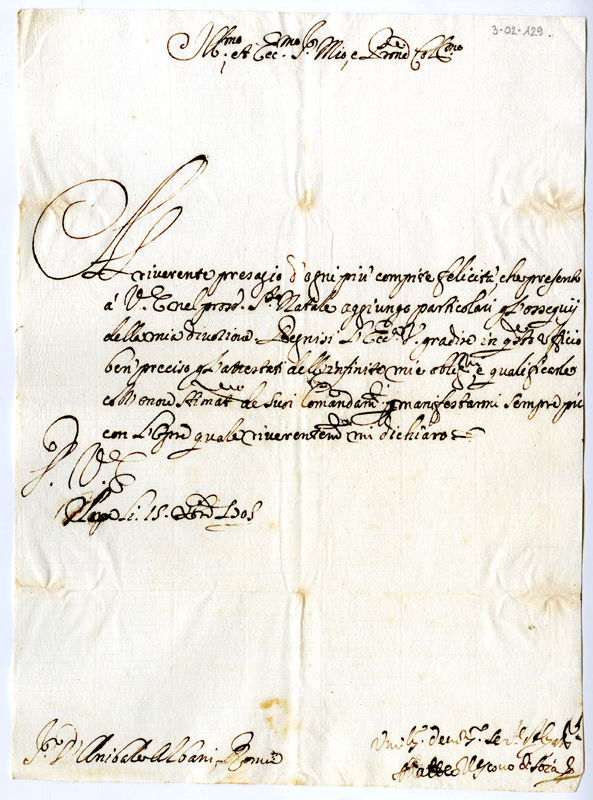 3-02-129.
Ill.mo, et Ecc.mo Sr Mio, e Prone Coll.mo
Al riverente presagio d'ogni più compite felicità che presento
à V. E. nel pross. S.to Natale aggiungo particolari gl'ossequij
della mia divotione. Degnisi l'Ecc.a V. gradire in q.sto ufficio
ben preciso gl'attestati delle infinite mie oblig.ni e qualificarle
coll'onore stimat. de suoi Comandam.ti manifestarmi sempre più
con l'opre quale riverentem.e mi dichiaro
D. V. E.
Nap. li. 15. Xbre 1705
Sr D. Anibale Albani Roma
Umil. Devot.
Matteo Vescovo di Sora